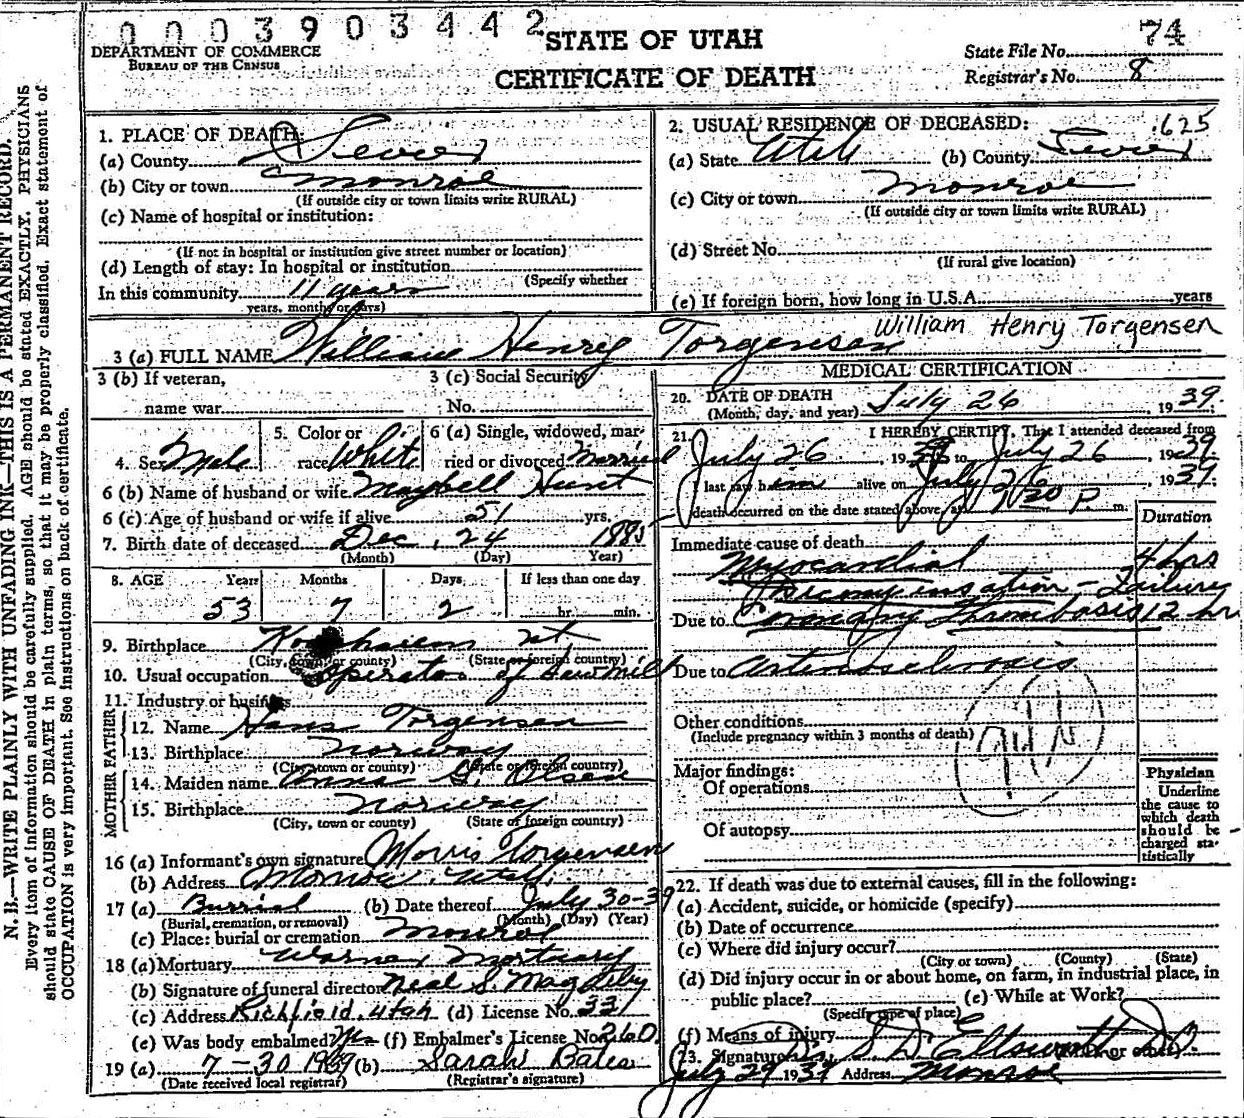 0003903442
DEPARTMENT OF COMMERCE
BUREAU OF THE CENSUS
STATE OF UTAH
CERTIFICATE OF DEATH
74
State File No.
Registrar's No. 8
N. B.—WRITE PLAINLY WITH UNFADING INK—THIS IS A PERMANENT RECORD.
Every item of information should be carefully supplied. AGE should be stated EXACTLY. PHYSICIANS
should state CAUSE OF DEATH in plain terms, so that it may be properly classified. Exact statement of
OCCUPATION is very important. See instructions on back of certificate.
1. PLACE OF DEATH:
(a) County Sevier
(b) City or town Monroe
(If outside city or town limits write RURAL)
(c) Name of hospital or institution:
(If not in hospital or institution give street number or location)
(d) Length of stay: In hospital or institution
(Specify whether
In this community 11 years
years, months or days)
2. USUAL RESIDENCE OF DECEASED: .625
(a) State Utah (b) County Sevier
(c) City or town Monroe
(If outside city or town limits write RURAL)
(d) Street No.
(If rural give location)
(e) If foreign born, how long in U.S.A. years
William Henry Torgensen
3 (a) FULL NAME William Henry Torgensen
3 (b) If veteran,
name war
3 (c) Social Security
No.
4. Sex Male
5. Color or
race Whit
6 (a) Single, widowed, mar-
ried or divorced Married
6 (b) Name of husband or wife Maybell Hunt
6 (c) Age of husband or wife if alive 51 yrs.
7. Birth date of deceased Dec. 24 1885
(Month) (Day) Year)
8. AGE Years Months Days If less than one day
53 7 2 hr. min.
9. Birthplace
(City, town, or county) (State or foreign country)
10. Usual occupation Operator of Sawmill
11. Industry or business
FATHER
12. Name Hans Torgensen
13. Birthplace Norway
(City, town or county) (State or foreign country)
MOTHER
14. Maiden name Anna G. Olsen
15. Birthplace Norway
(City, town or county) (State of foreign country)
16 (a) Informant's own signature Morris Torgensen
(b) Address Monroe, Utah
17 (a) Burrial (b) Date thereof July 30-39
(Burial, cremation, or removal) (Month) (Day) (Year)
(c) Place: burial or cremation Monroe
18 (a) Mortuary Warner Mortuary
(b) Signature of funeral director Neal S. Magleby
(c) Address Richfield, Utah (d) License No. 331
(e) Was body embalmed (f) Embalmer's License No. 260
19 (a) 7-30 1939 (b) Sarah Bates
(Date received local registrar) (Registrar's signature)
MEDICAL CERTIFICATION
20. DATE OF DEATH
(Month, day, and year) July 26, 1939.
21. I HEREBY CERTIFY, That I attended deceased from
July 26, 1939 to July 26, 1939
last saw him alive on July 26, 1939.
death occurred on the date stated above, at 9:20 P. m.
Duration
Immediate cause of death
Myocardial 4 hrs
Decompensation - Failure
Due to Coronary Thrombosis 12 hr
Due to Arteriosclerosis
Other conditions
(Include pregnancy within 3 months of death)
94
Major findings:
Of operations
Of autopsy
Physician
Underline
the cause to
which death
should be
charged sta-
tistically
22. If death was due to external causes, fill in the following:
(a) Accident, suicide, or homicide (specify)
(b) Date of occurrence
(c) Where did injury occur?
(City or town) (County) (State)
(d) Did injury occur in or about home, on farm, in industrial place, in
public place? (e) While at Work?
(Specify type of place)
(f) Means of injury
23. Signature Dr. S. D. Ellsworth or other)
July 29, 1939 Address Monroe